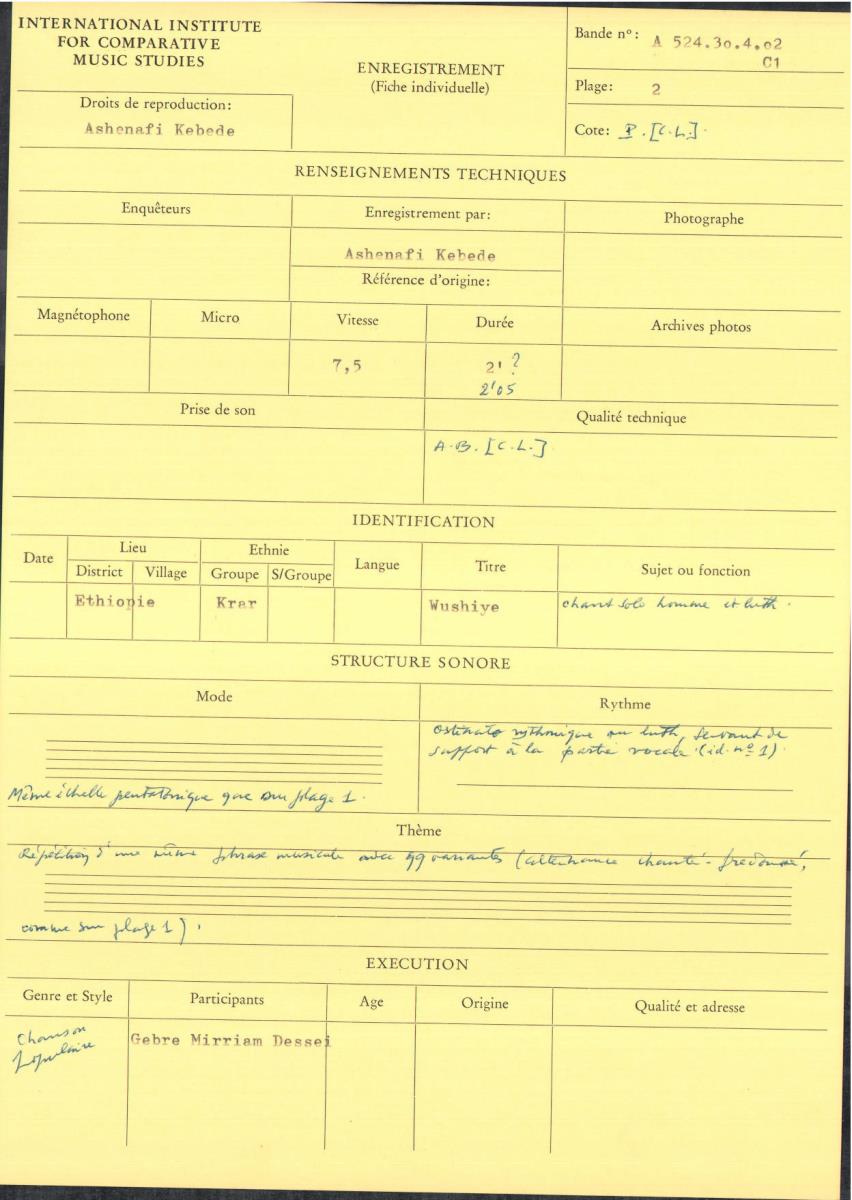 INTERNATIONAL INSTITUTE
FOR COMPARATIVE
MUSIC STUDIES
Droits de reproduction:
Ashenafi Kebede
ENREGISTREMENT
(Fiche individuelle)
Bande nº: A 524.3o.4.o2
C1
Plage: 2
Cote: P. [C.L].
RENSEIGNEMENTS TECHNIQUES
Enquêteurs
Enregistrement par:
Photographe
Ashenafi Kebede
Référence d'origine:
Magnétophone
Micro
Vitesse
Durée
Archives photos
7,5
2' ?
2'05
Prise de son
Qualité technique
A.B. [C.L.]
IDENTIFICATION
Date
Lieu
District
Village
Ethnie
Groupe
S/Groupe
Langue
Titre
Sujet ou fonction
Ethiopie
Krar
Wushiye
chant solo homme et luth.
STRUCTURE SONORE
Mode
Rythme
Ostinato rythmique au luth, servant de
support à la partie vocale (id. nº 1).
Même échelle pentatonique que sur plage 1.
Thème
Répétition d'une même phrase musicale avec qq variantes (alternance chanté - fredonné,
comme sur plage 1).
EXECUTION
Genre et Style
Participants
Age
Origine
Qualité et adresse
Chanson
populaire
Gebre Mirriam Dessei